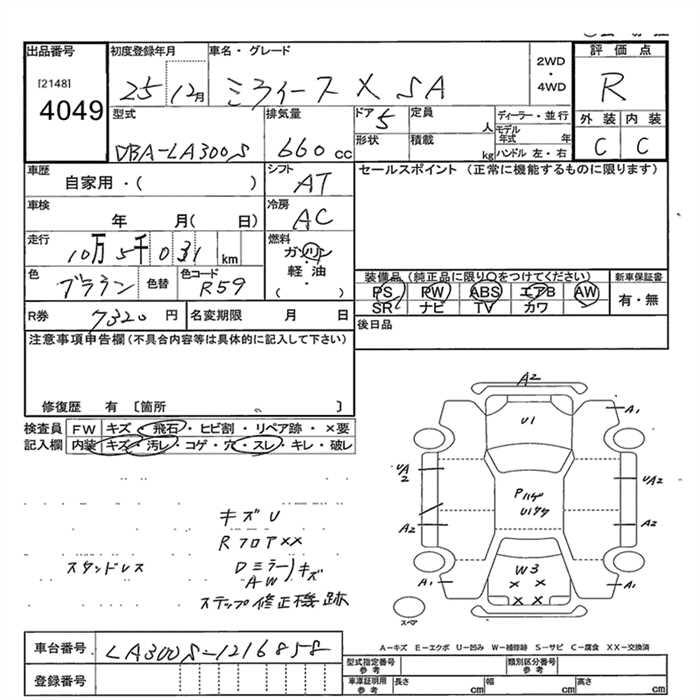 出品番号
[2148]
4049
初度登録年月
25 12月
車名・グレード
ミライース X SA
2WD
・
4WD
評価点
R
外装 内装
C C
型式
DBA-LA300S
排気量
660 cc
ドア 5
形状
定員
人
積載
kg
ディーラー・並行
モデル
年式 年
ハンドル 左・右
車歴
自家用・( )
シフト
AT
セールスポイント (正常に機能するものに限ります)
車検
年 月( 日)
冷房
AC
走行
10万5千031 km
燃料
ガソリン
・
軽油
( )
色
ブラウン
色替
色コード
R59
装備品 (純正品に限り○をつけてください)
PS PW ABS エアB AW
SR ナビ TV カワ
新車保証書
有・無
R券 7320 円
名変期限 月 日
後日品
注意事項申告欄 (不具合内容等は具体的に記入して下さい)
修復歴 有 〔箇所 〕
検査員
記入欄
FW キズ・飛石・ヒビ割・リペア跡・×要
内装 キズ・汚レ・コゲ・穴・スレ・キレ・破レ
キズU
Rフロア××
スタッドレス
Dミラー
AW
キズ
ステップ修正機跡
A2
U1
A1
UA2
UA2
Pハゲ
A2
A2
W3
× ×
× ×
A1
A1
スペア
A-キズ E-エクボ U-凹み W-補修跡 S-サビ C-腐食 XX-交換済
車台番号 LA300S-1216858
登録番号
型式指定番号
参考
類別区分番号
参考
車庫証明用
参考
長さ cm 幅 cm 高さ cm